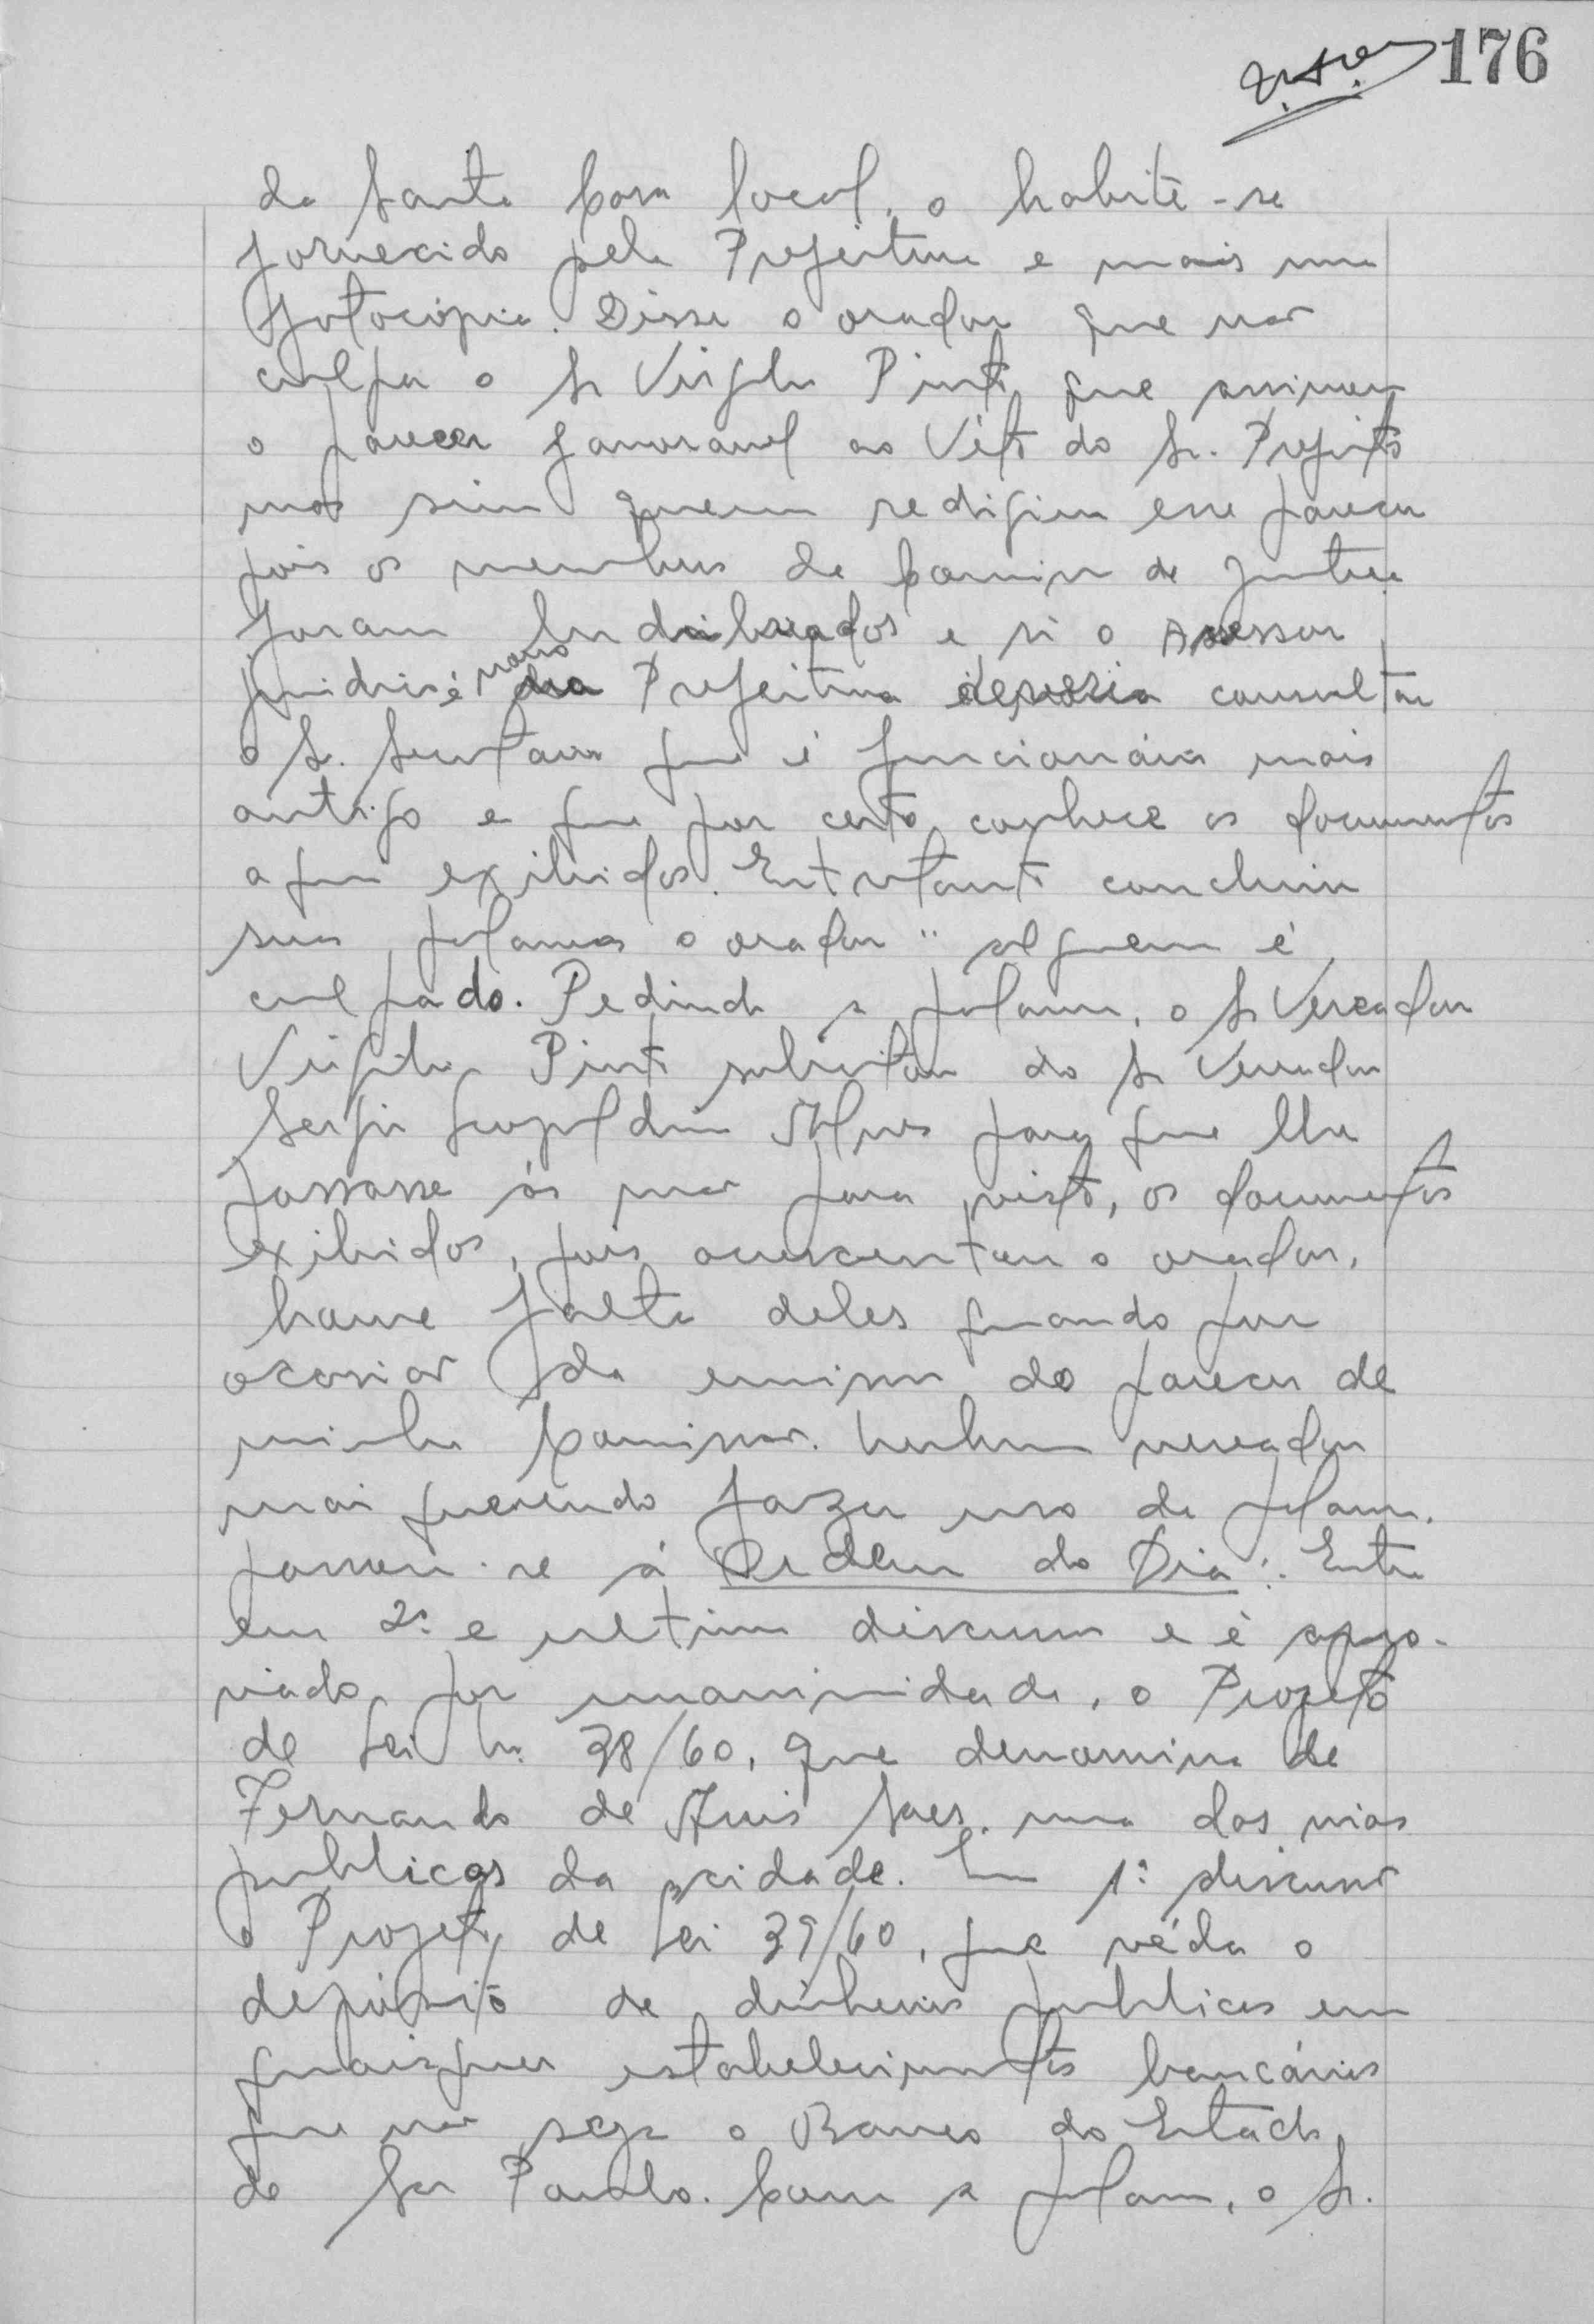 176
da Santa Casa local, o habite-se
fornecido pela Prefeitura e mais uma
fotocópia. Disse o orador que não
culpa o Sr Virgilio Pinto, que assinou
o parecer favoravel ao Véto do Sr. Prefeito
mas sim quem redigiu esse parecer
pois os membros da Comissão de Justiça
foram ludibriados e si o Assessor
juridico é novo na Prefeitura deveria consultar
o Sr. Secretario que é funcionário mais
antigo e que por certo conhece os documentos
aqui exibidos. Entretanto concluiu
suas palavras o orador "alguem é
culpado. Pedindo a palavra, o Sr Vereador
Virgilio Pinto solicitou do Sr Vereador
Sergio Leopoldino Alves para que lhe
passasse ás mãos para visto, os documentos
exibidos, pois acrescentou o orador,
houve falta deles quando por
ocasião da emissão do parecer de
minha Comissão. Nenhum vereador
mais querendo fazer uso da palavra,
passou-se á Ordem do Dia: Entra
em 2ª e ultima discussão e é apro-
vado por unanimidade, o Projeto
de Lei nº 38/60, que denomina de
Fernando de Assis Saes, uma das vias
publicas da cidade. Em 1ª discussão
o Projeto de Lei 39/60, que véda o
depósito de dinheiros publicos em
quaisquer estabelecimentos bancários
que não seja o Banco do Estado
de São Paulo. Com a palavra, o Sr.